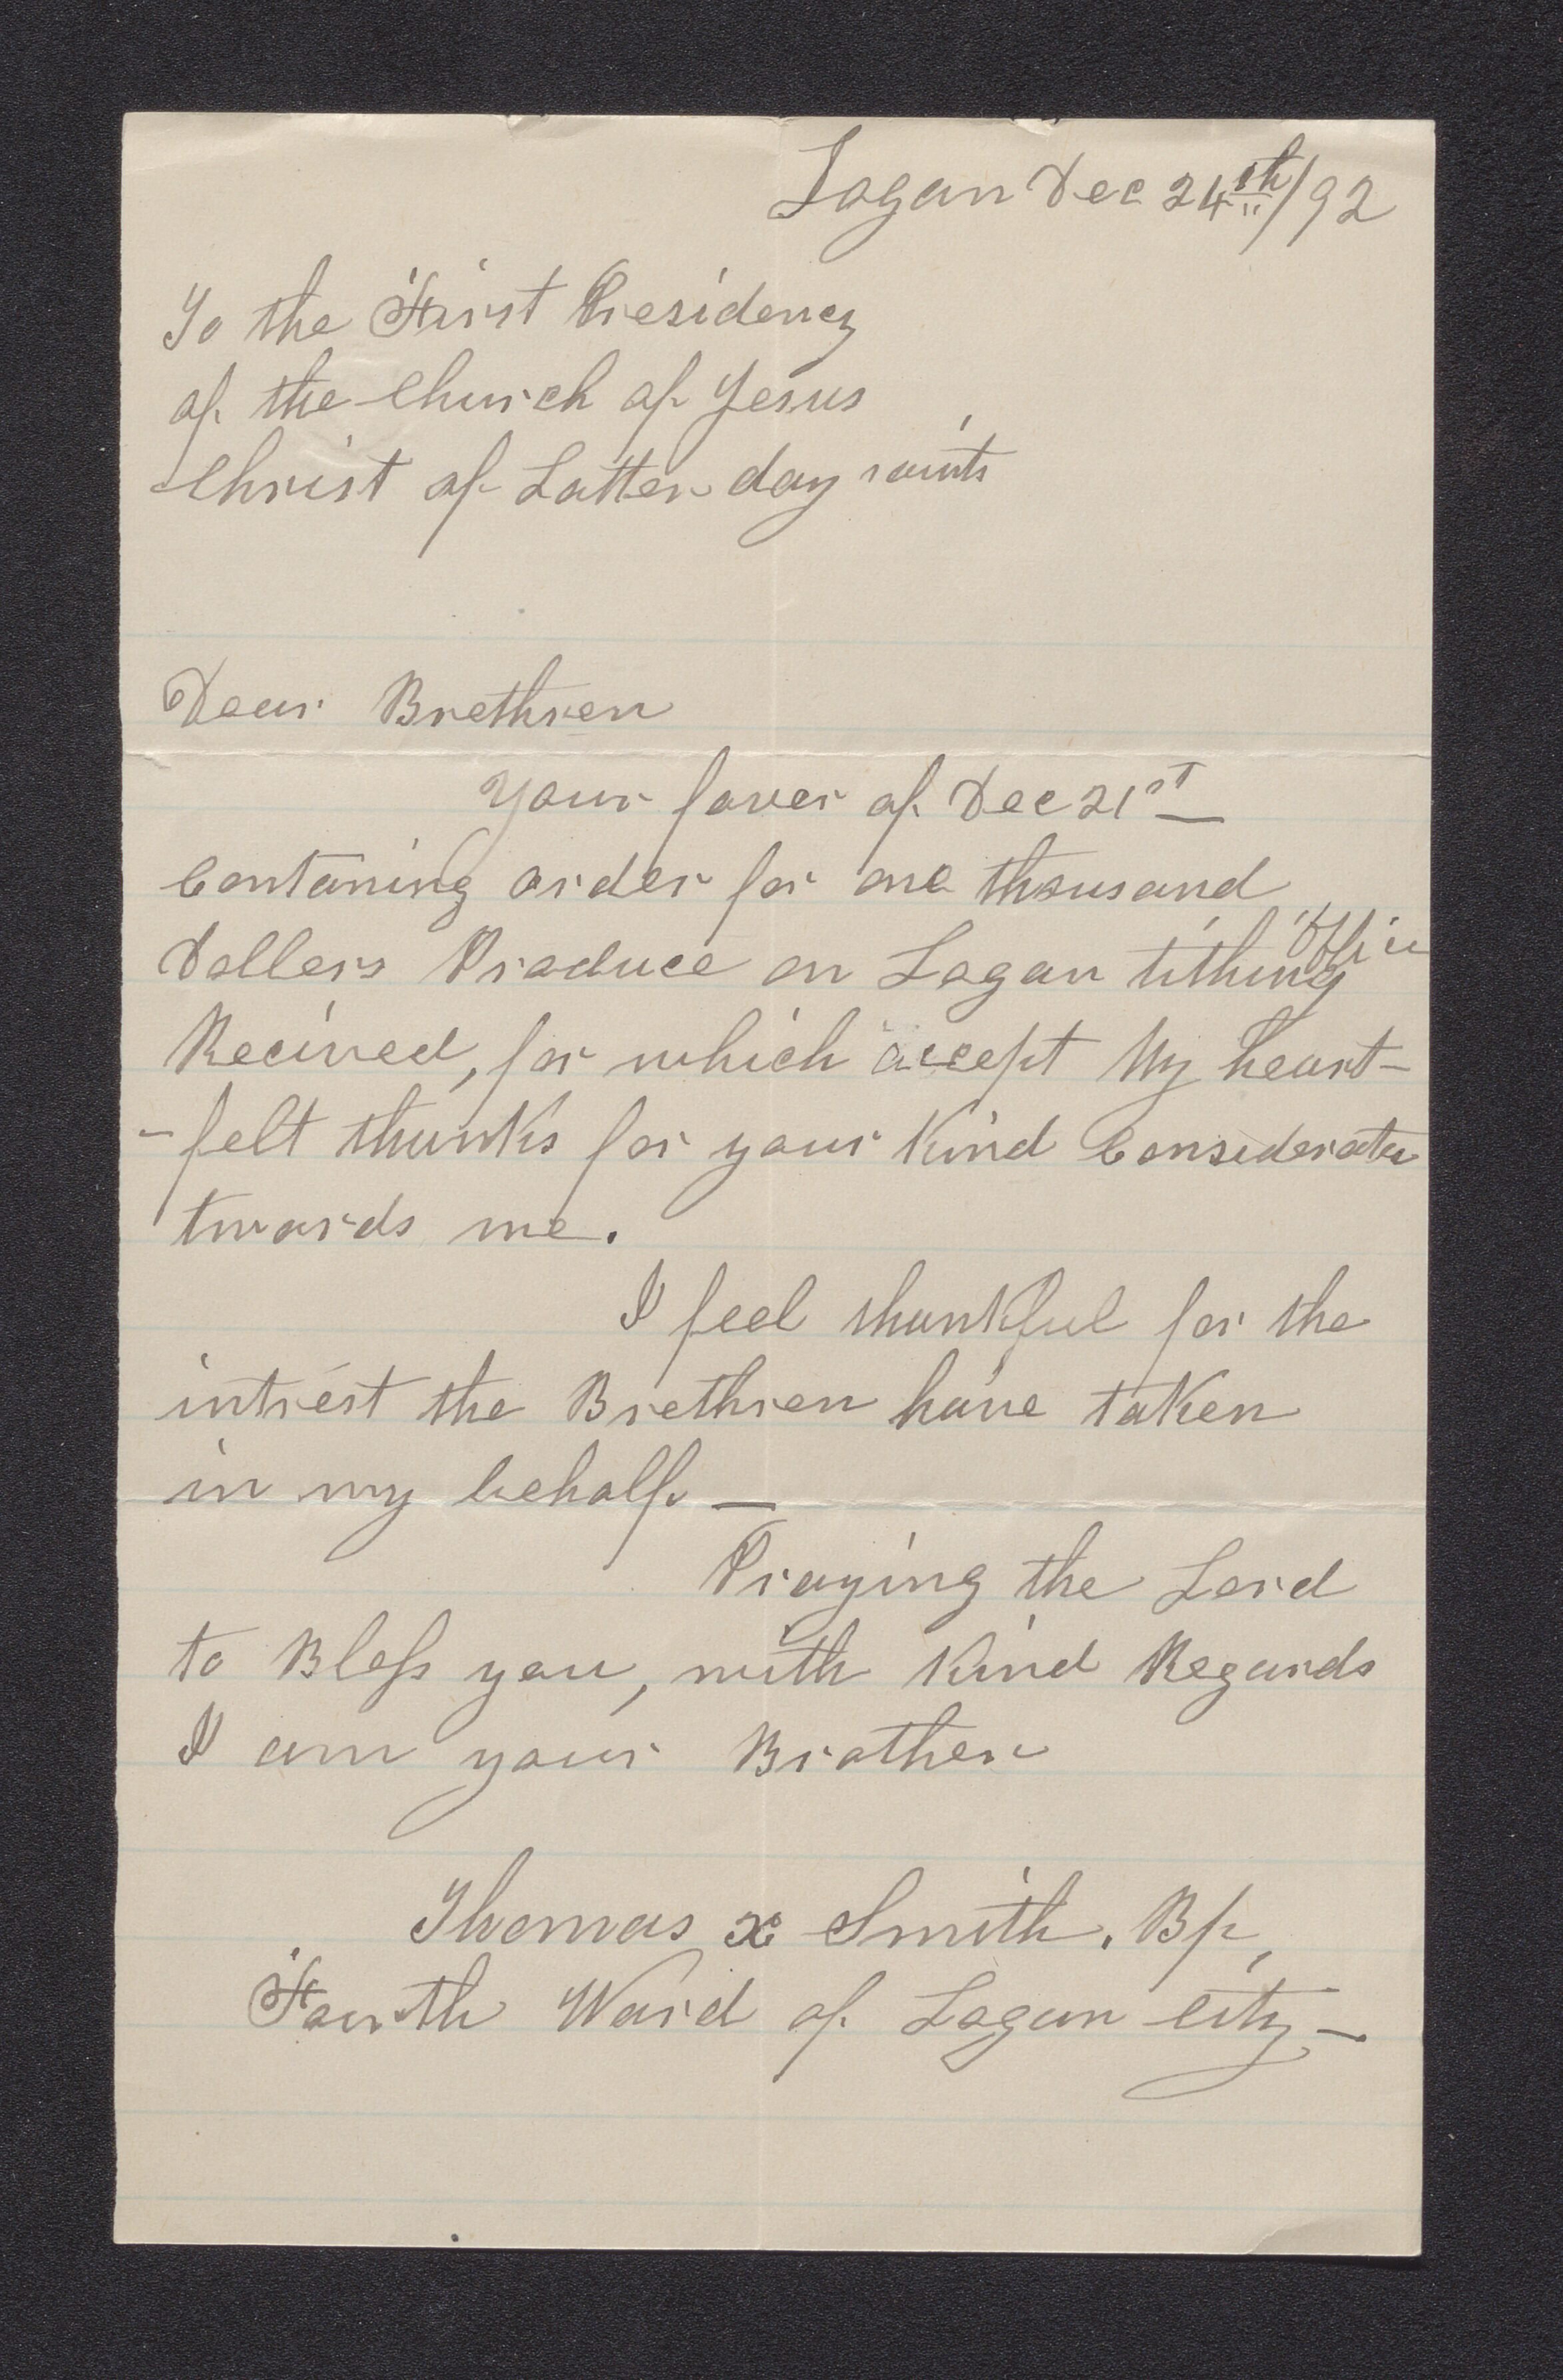 Logan Dec 24th/92
To the First Presidency
of the Church of Jesus
Christ of Latter day saints
Dear Brethren
Your faver of Dec 21st
Contaning order for one thousand
Dollers Produce on Logan tithing Office
Recived, for which accept My heart-
-felt thanks for your Kind Consideratn
twards me.
I feel thankful for the
intrest the Brethren have taken
in my behalf. —
Praying the Lord
to Bless you, with Kind Regards
I am your Brother
Thomas x Smith. Bp,
Fourth Ward of Logan City —